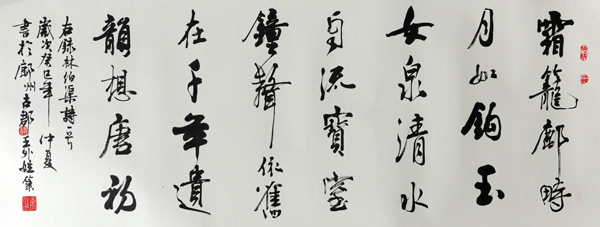 霜籠鄜畤
月如鉤玉
女泉清水
自流寶室
鐘聲依舊
在千年遺
韻想唐初
右錄林伯渠詩一首
歲次癸巳年仲夏
書於鄜州古郡